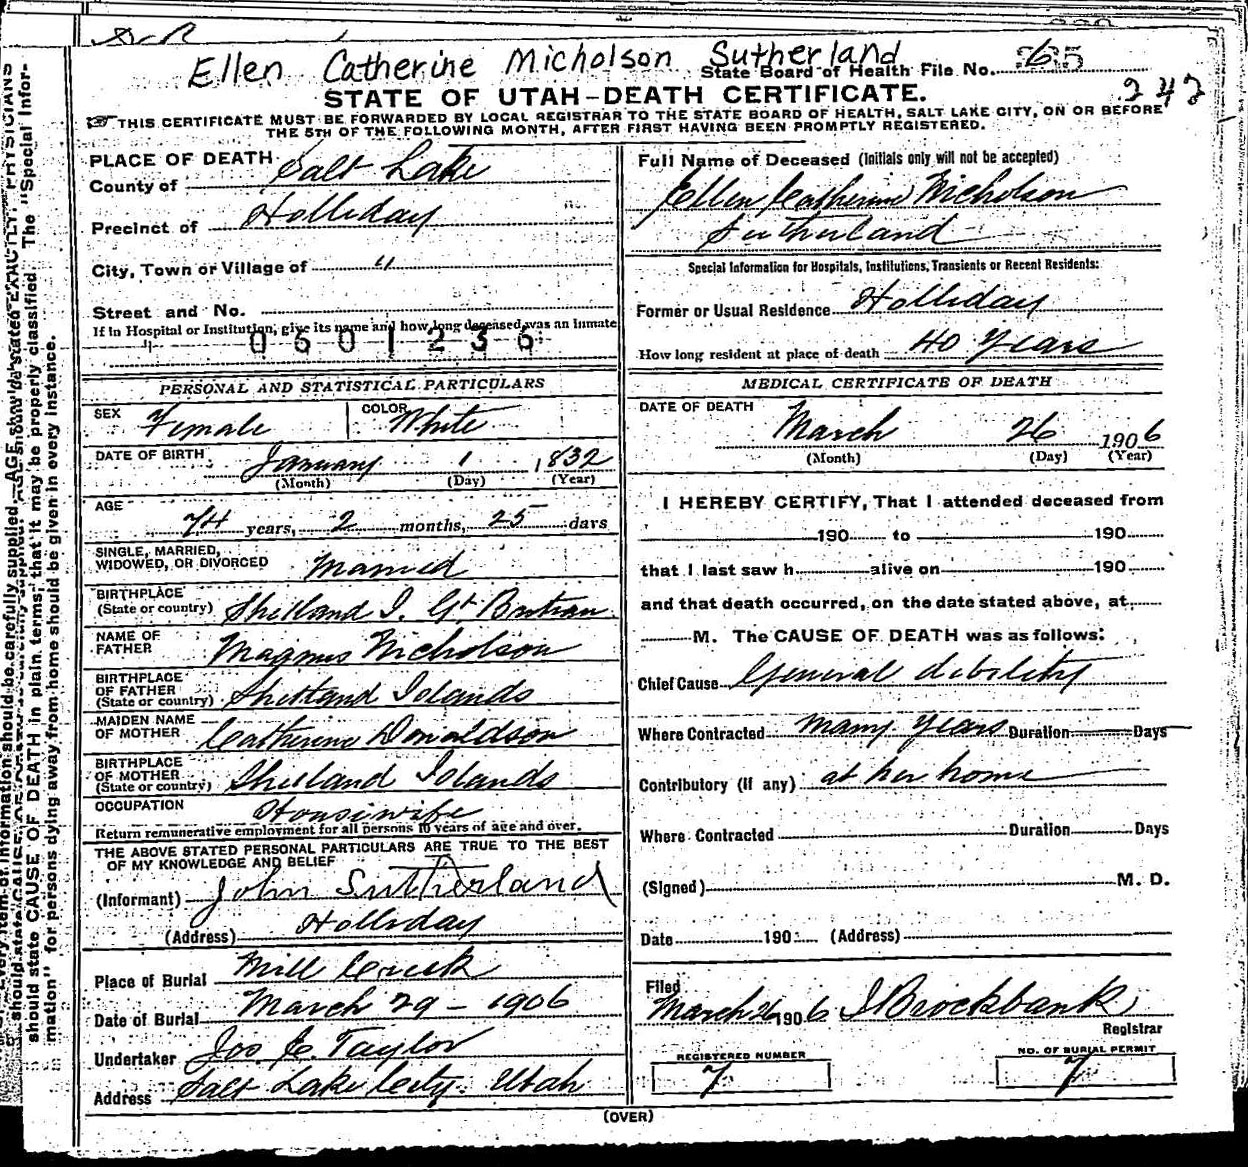 Ellen Catherine Nicholson Sutherland
State Board of Health File No. 635
242
STATE OF UTAH-DEATH CERTIFICATE.
THIS CERTIFICATE MUST BE FORWARDED BY LOCAL REGISTRAR TO THE STATE BOARD OF HEALTH, SALT LAKE CITY, ON OR BEFORE
THE 5TH OF THE FOLLOWING MONTH, AFTER FIRST HAVING BEEN PROMPTLY REGISTERED.
PLACE OF DEATH
County of Salt Lake
Precinct of Holliday
City, Town or Village of "
Street and No.
If in Hospital or Institution, give its name and how long deceased was an inmate
0601236
PERSONAL AND STATISTICAL PARTICULARS
SEX Female COLOR White
DATE OF BIRTH January 1 1832
(Month) (Day) (Year)
AGE
74 years, 2 months, 25 days
SINGLE, MARRIED,
WIDOWED, OR DIVORCED Married
BIRTHPLACE
(State or country) Shetland I. Gt. Britian
NAME OF
FATHER Magnus Nicholson
BIRTHPLACE
OF FATHER
(State or country) Shetland Islands
MAIDEN NAME
OF MOTHER Catherine Donaldson
BIRTHPLACE
OF MOTHER
(State or country) Shetland Islands
OCCUPATION Housewife
Return remunerative employment for all persons 10 years of age and over.
THE ABOVE STATED PERSONAL PARTICULARS ARE TRUE TO THE BEST
OF MY KNOWLEDGE AND BELIEF
(Informant) John Sutherland
(Address) Holliday
Place of Burial Mill Creek
Date of Burial March 29 - 1906
Undertaker Jos E. Taylor
Address Salt Lake City. Utah
Full Name of Deceased (Initials only will not be accepted)
Ellen Catherine Nicholson
Sutherland
Special Information for Hospitals, Institutions, Transients or Recent Residents:
Former or Usual Residence Holliday
How long resident at place of death 40 Years
MEDICAL CERTIFICATE OF DEATH
DATE OF DEATH
March 26 1906
(Month) (Day) (Year)
I HEREBY CERTIFY, That I attended deceased from
190 to 190
that I last saw h alive on 190
and that death occurred, on the date stated above, at
M. The CAUSE OF DEATH was as follows:
Chief Cause General debility
Where Contracted many years Duration Days
Contributory (if any) at her home
Where Contracted Duration Days
(Signed) M. D.
Date 190 (Address)
Filed
March 26 1906 Brockbank
Registrar
REGISTERED NUMBER
7
NO. OF BURIAL PERMIT
7
(OVER)
should state CAUSE OF DEATH in plain terms, that it may be properly classified. The "Special Infor-
mation" for persons dying away from home should be given in every instance.